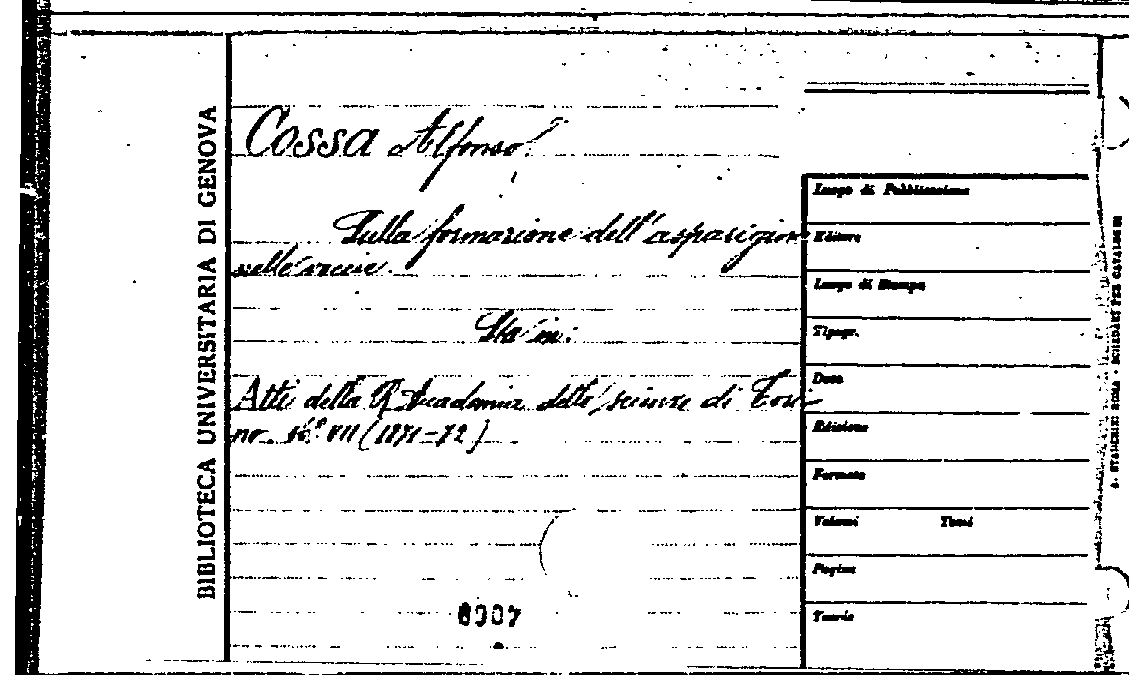 BIBLIOTECA UNIVERSITARIA DI GENOVA
Cossa Alfonso
Sulla formazione dell'asparagina
nelle veccie.
Sta in:
Atti della R. Accademia delle scienze di Tori-
no. VII (1871-72)
6007
Luogo di Pubblicazione
Editore
Luogo di Stampa
Tipogr.
Data
Edizione
Formato
Volumi Tomi
Pagine
STADERINI ROMA • SCHEDARI PER CATALOGHI